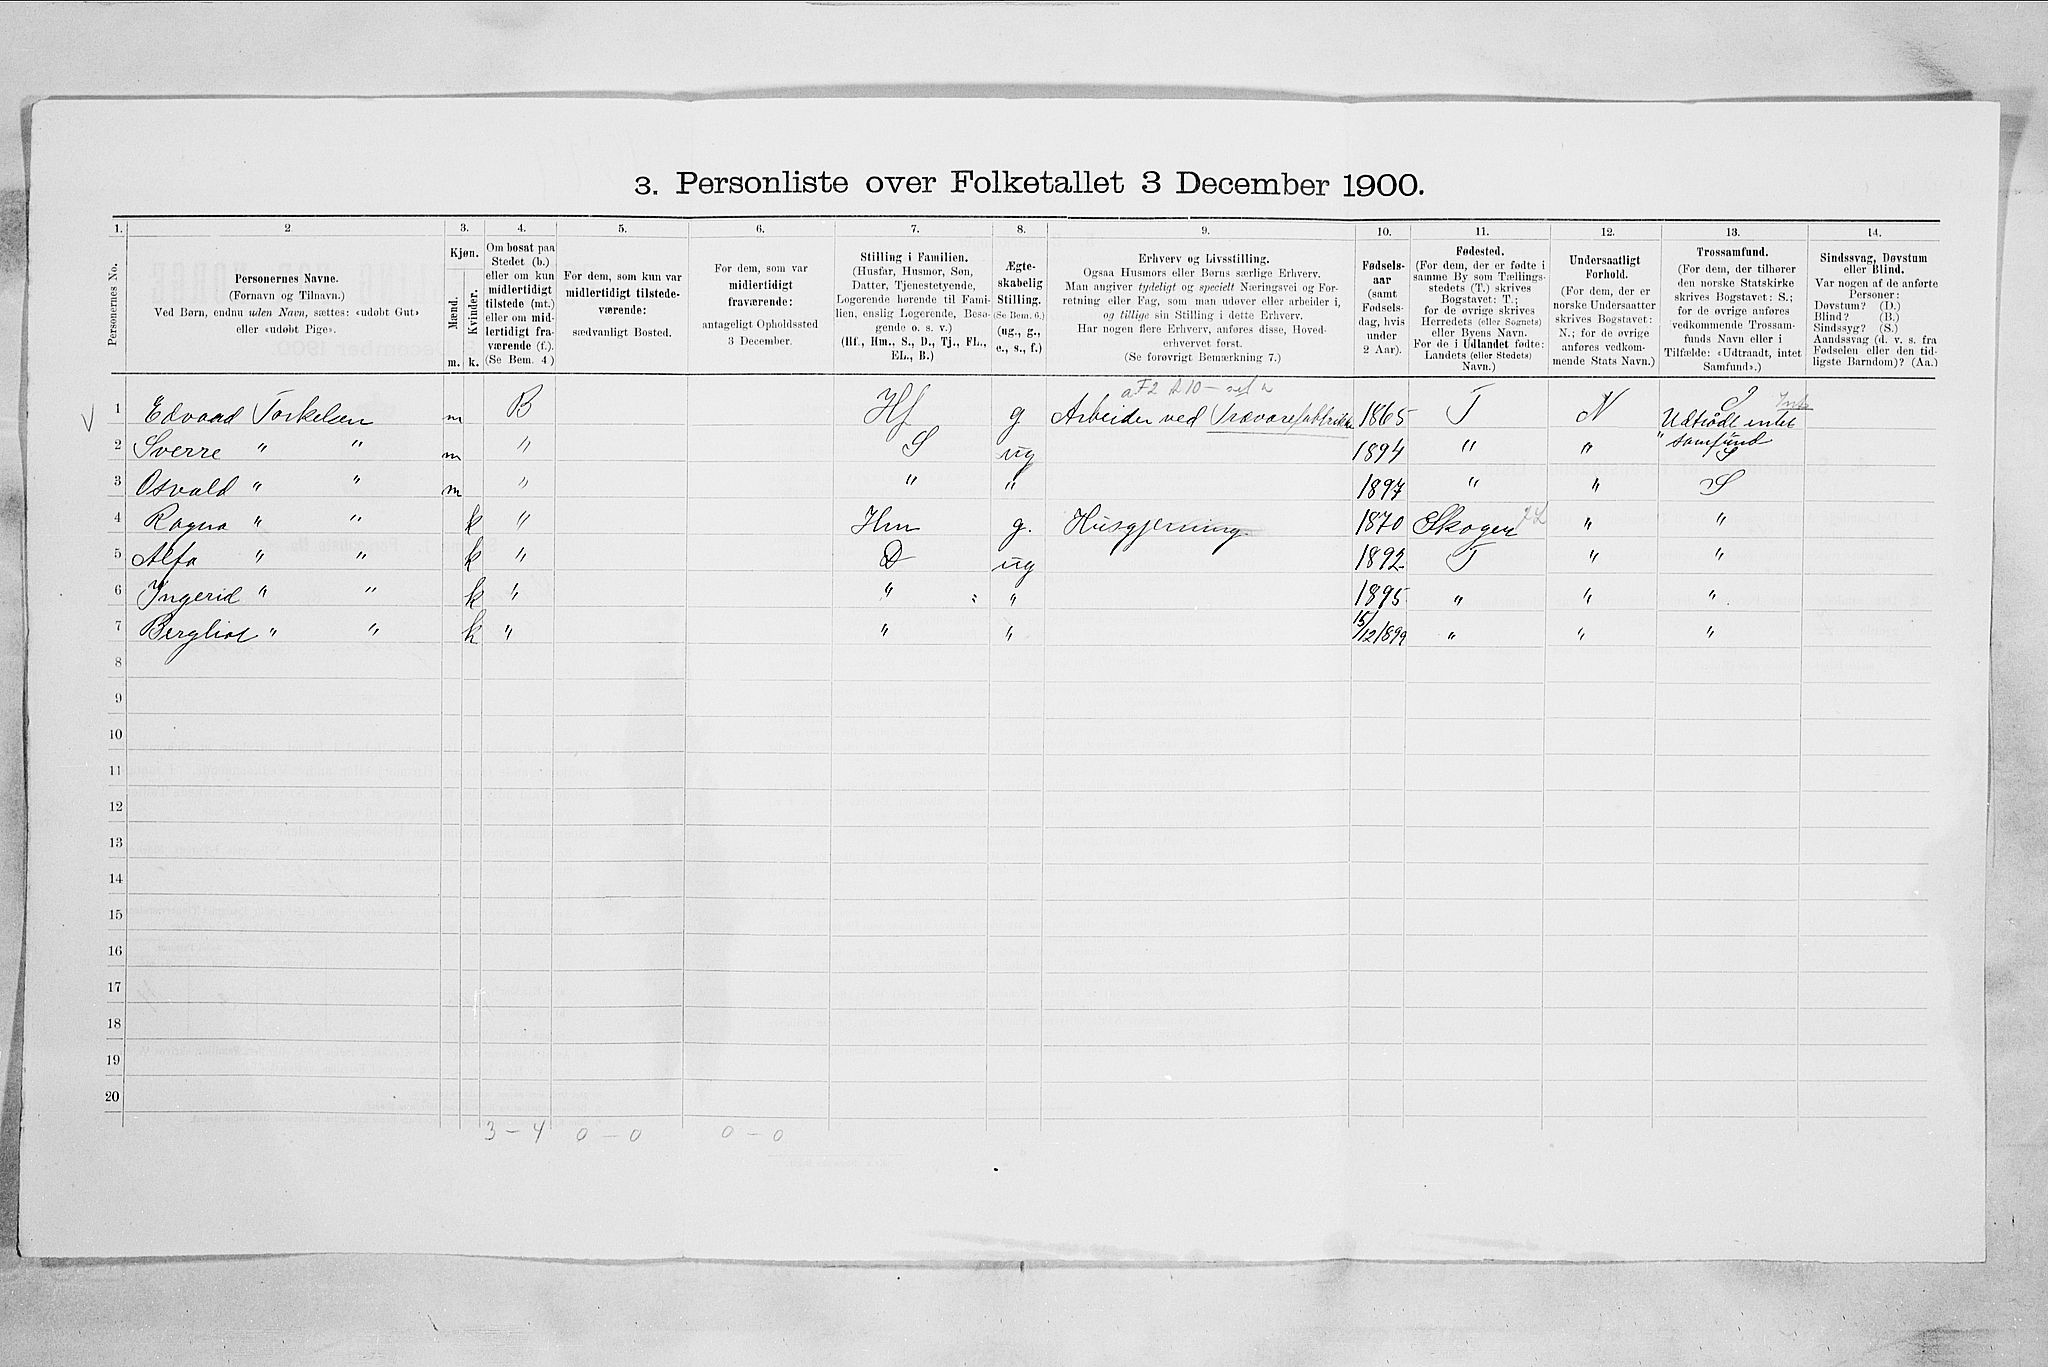 3. Personliste over Folketallet 3 December 1900.
1. 2 3. 4. 5. 6. 7. 8. 9. 10. 11. 12. 13. 14.
Personernes No.
Personernes Navne.
(Fornavn og Tilnavn.)
Ved Børn, endnu uden Navn, sættes: «udøbt Gut»
eller «udøbt Pige».
Kjøn.
Mænd.
Kvinder.
m. k.
Om bosat paa
Stedet (b.)
eller om kun
midlertidigt
tilstede (mt.)
eller om mid-
lertidigt fra-
værende (f.).
(Se Bem. 4.)
For dem, som kun var
midlertidigt tilstede-
værende:
sædvanligt Bosted.
For dem, som var
midlertidigt
fraværende:
antageligt Opholdssted
3 December.
Stilling i Familien.
(Husfar, Husmor, Søn,
Datter, Tjenestetyende,
Logerende hørende til Fami-
lien, enslig Logerende, Besø-
gende o. s. v.)
(Hf., Hm., S., D., Tj., FL.,
EL., B.)
Ægte-
skabelig
Stilling.
(Se Bem. 6.)
(ug., g.,
e., s., f.)
Erhverv og Livsstilling.
Ogsaa Husmors eller Børns særlige Erhverv.
Man angiver tydeligt og specielt Næringsvei og For-
retning eller Fag, som man udøver eller arbeider i,
og tillige sin Stilling i dette Erhverv.
Har nogen flere Erhverv, anføres disse, Hoved-
erhvervet først.
(Se forøvrigt Bemærkning 7.)
Fødsels-
aar
(samt
Fødsels-
dag, hvis
under
2 Aar).
Fødested.
(For dem, der er fødte i
samme By som Tællings-
stedets (T.) skrives
Bogstavet: T.;
for de øvrige skrives
Herredets (eller Sognets)
eller Byens Navn.
For de i Udlandet fødte:
Landets (eller Stedets)
Navn.)
Undersaatligt
Forhold.
(For dem, der er
norske Undersaatter
skrives Bogstavet:
N.; for de øvrige
anføres vedkom-
mende Stats Navn.)
Trossamfund.
(For dem, der tilhører
den norske Statskirke
skrives Bogstavet: S.;
for de øvrige anføres
vedkommende Trossam-
funds Navn eller i
Tilfælde: «Udtraadt, intet
Samfund».)
Sindssvag, Døvstum
eller Blind.
Var nogen af de anførte
Personer:
Døvstum? (D.)
Blind? (B.)
Sindssyg? (S.)
Aandssvag (d. v. s. fra
Fødselen eller den tid-
ligste Barndom)? (Aa.)
1 Edvard Torkelsen m B Hf g Arbeider ved Trævarefabrikk 1865 T N Udtrådt intet
samfund
2 Sverre " " m " S ug 1894 " " S
3 Osvald " " m " " " 1897 " " S
4 Ragna " " k " Hm g. Husgjerning 1870 Skoger " "
5 Alfa " " k " D ug 1892 T " "
6 Ingerid " " k " " " 1895 " " "
7 Bergliot " " k " " " 15/12 1899 " " "
8
9
10
11
12
13
14
15
16
17
18
19
20
3 – 4 0 – 0 0 – 0